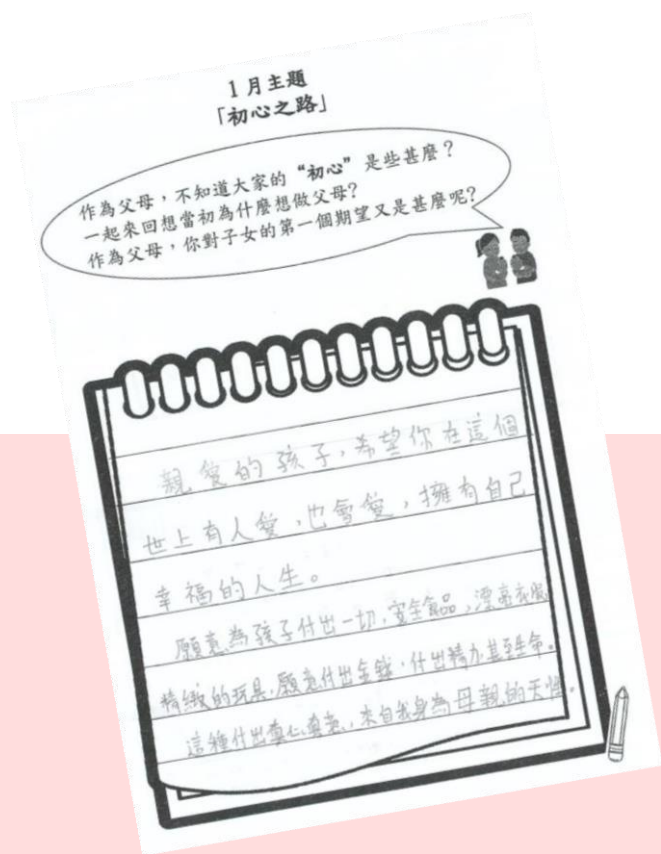 1月主題
「初心之路」
作為父母，不知道大家的“初心”是些甚麼？
一起來回想當初為什麼想做父母?
作為父母，你對子女的第一個期望又是甚麼呢?
親愛的孩子，希望你在這個
世上有人愛，也會愛，擁有自己
幸福的人生。
願意為孩子付出一切，安全食品，漂亮衣服
精緻的玩具，願意付出金錢，付出精力甚至生命。
這種付出真心真意，來自我身為母親的天性。